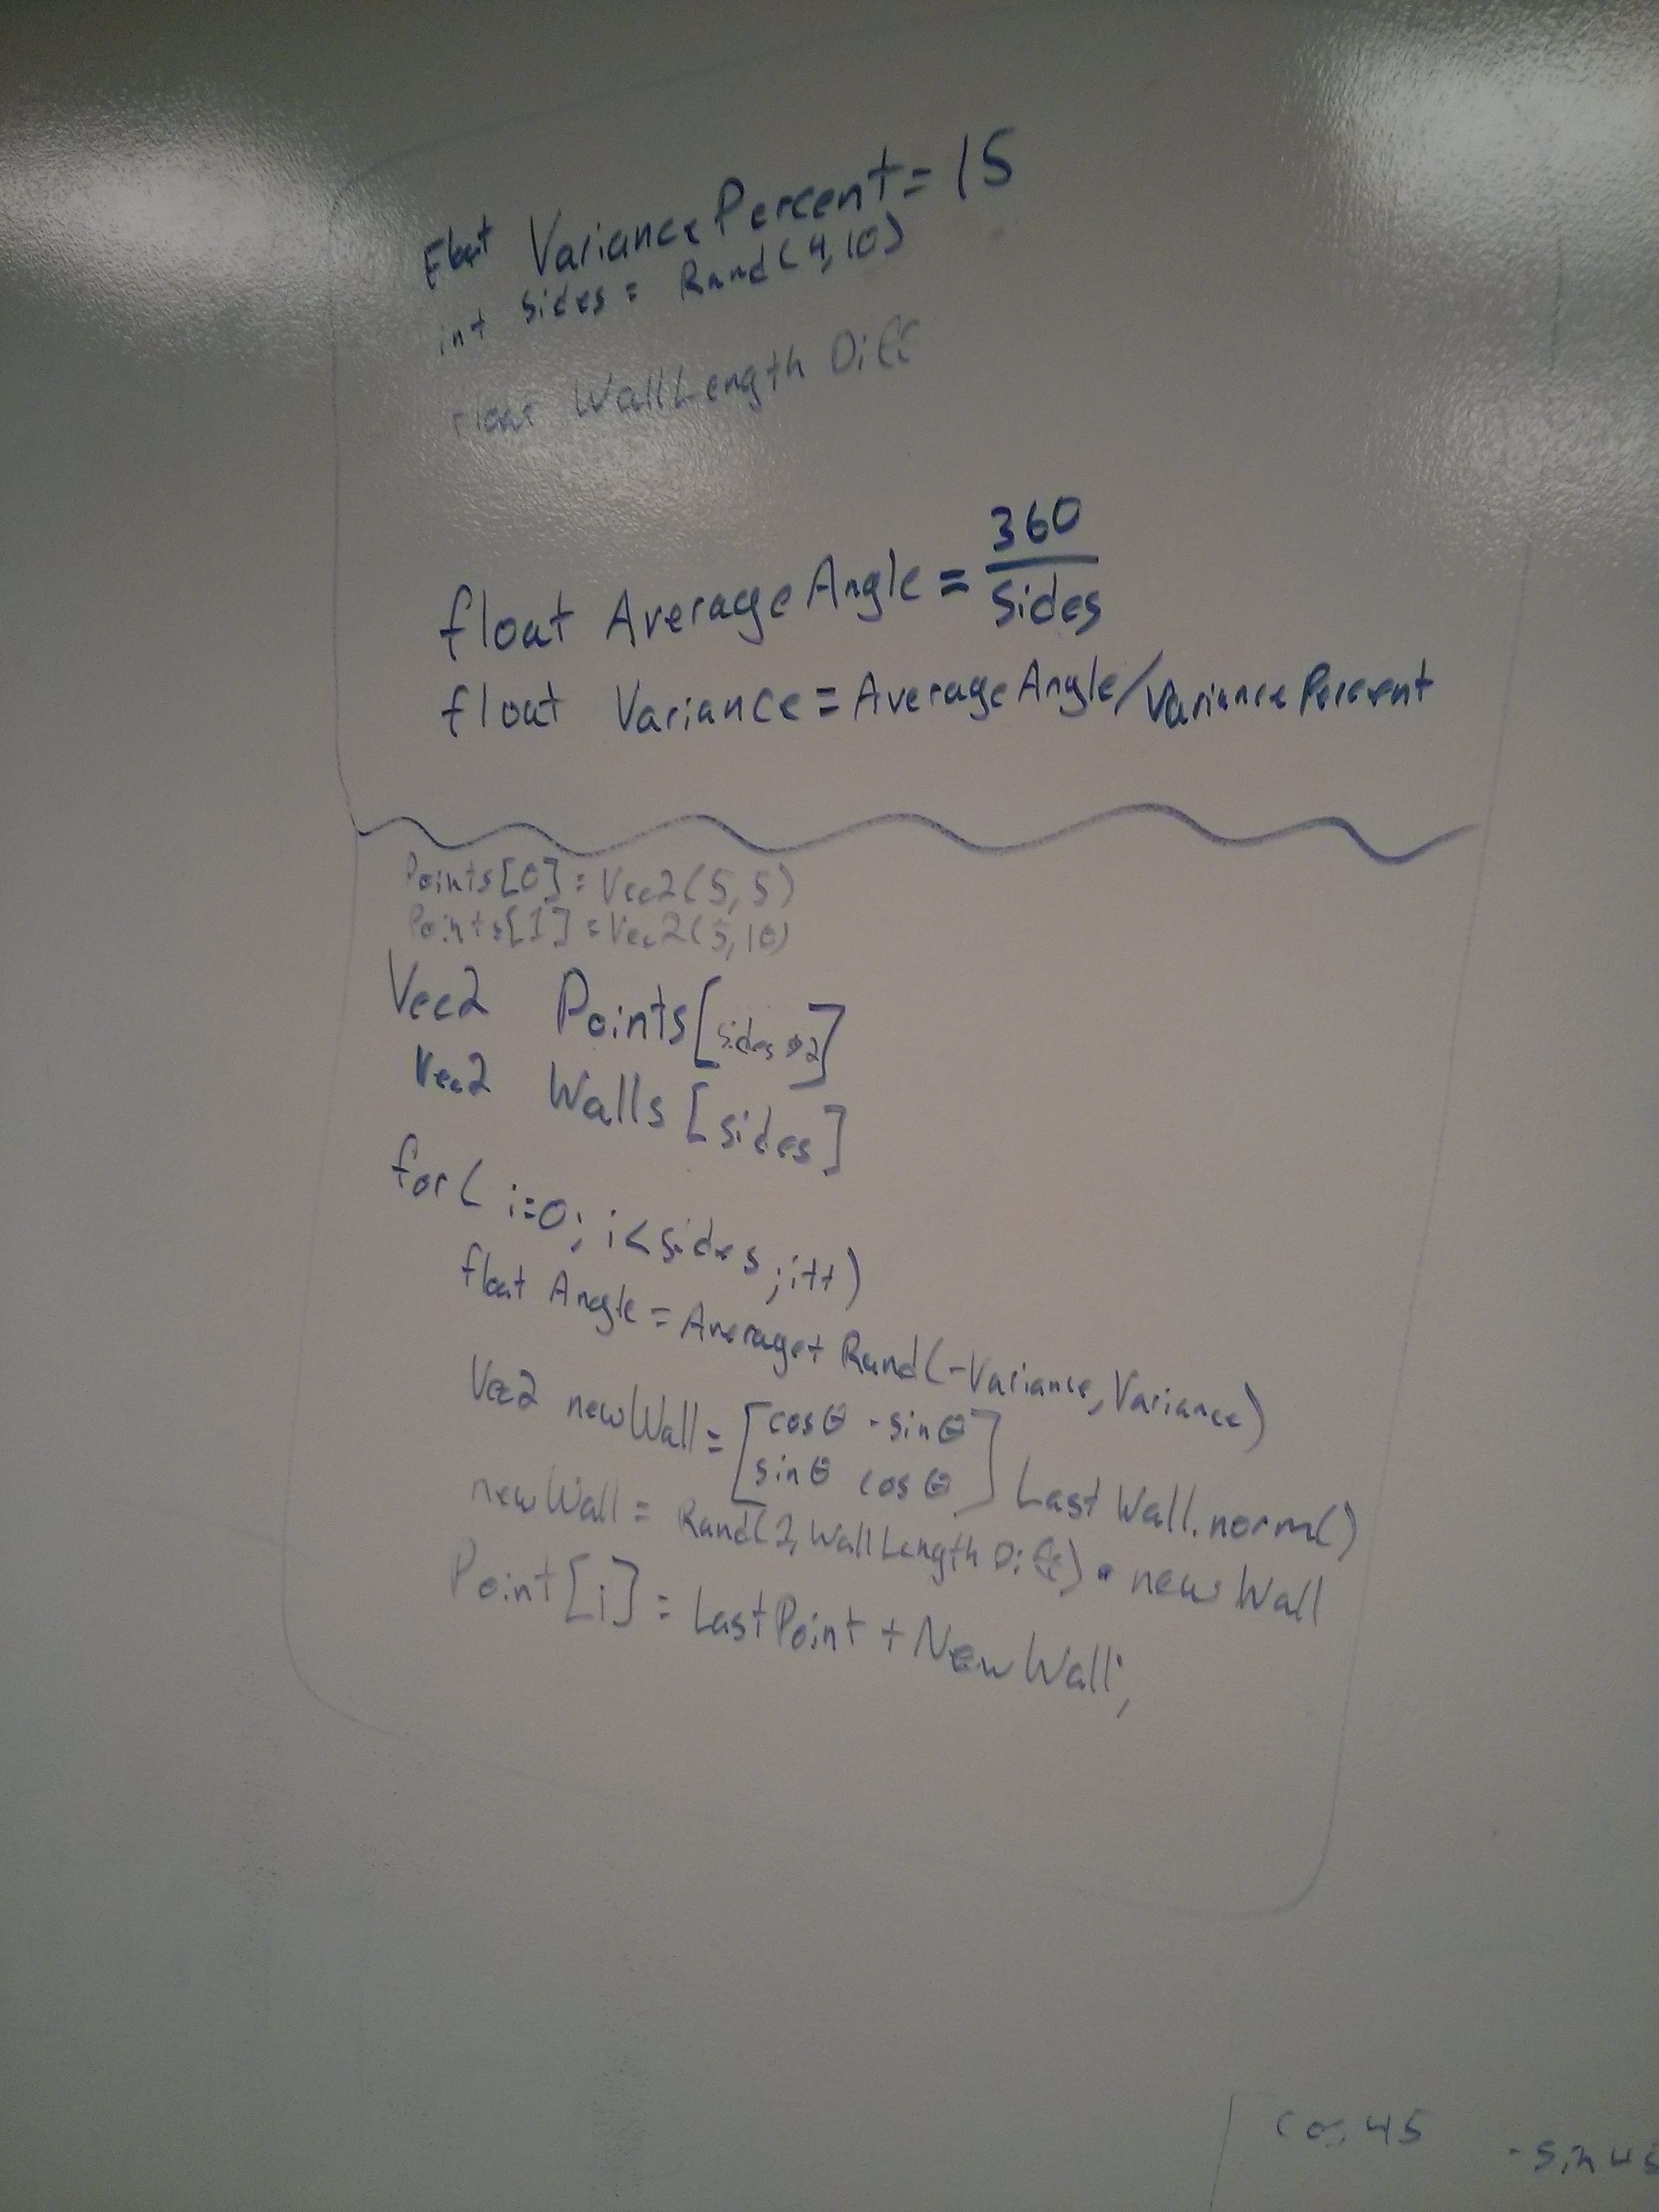 Float VariancePercent = 15
int sides = Rand(4,10)
Float WallLength Diff
float AverageAngle = 360
Sides
float Variance = AverageAngle/VariancePercent
Points[0] = Vec2(5,5)
Points[1] = Vec2(5,10)
Vec2 Points[sides 2]
Vec2 Walls [sides]
for( i=0; i<sides ;i++)
float Angle = Average+ Rand(-Variance, Variance)
Vec2 newWall = [cosθ -sinθ
sinθ cosθ] Last Wall.norm()
newWall = Rand(1, WallLength Diff) • new Wall
Point[i] = LastPoint + New Wall;
cos 45 -sin 45